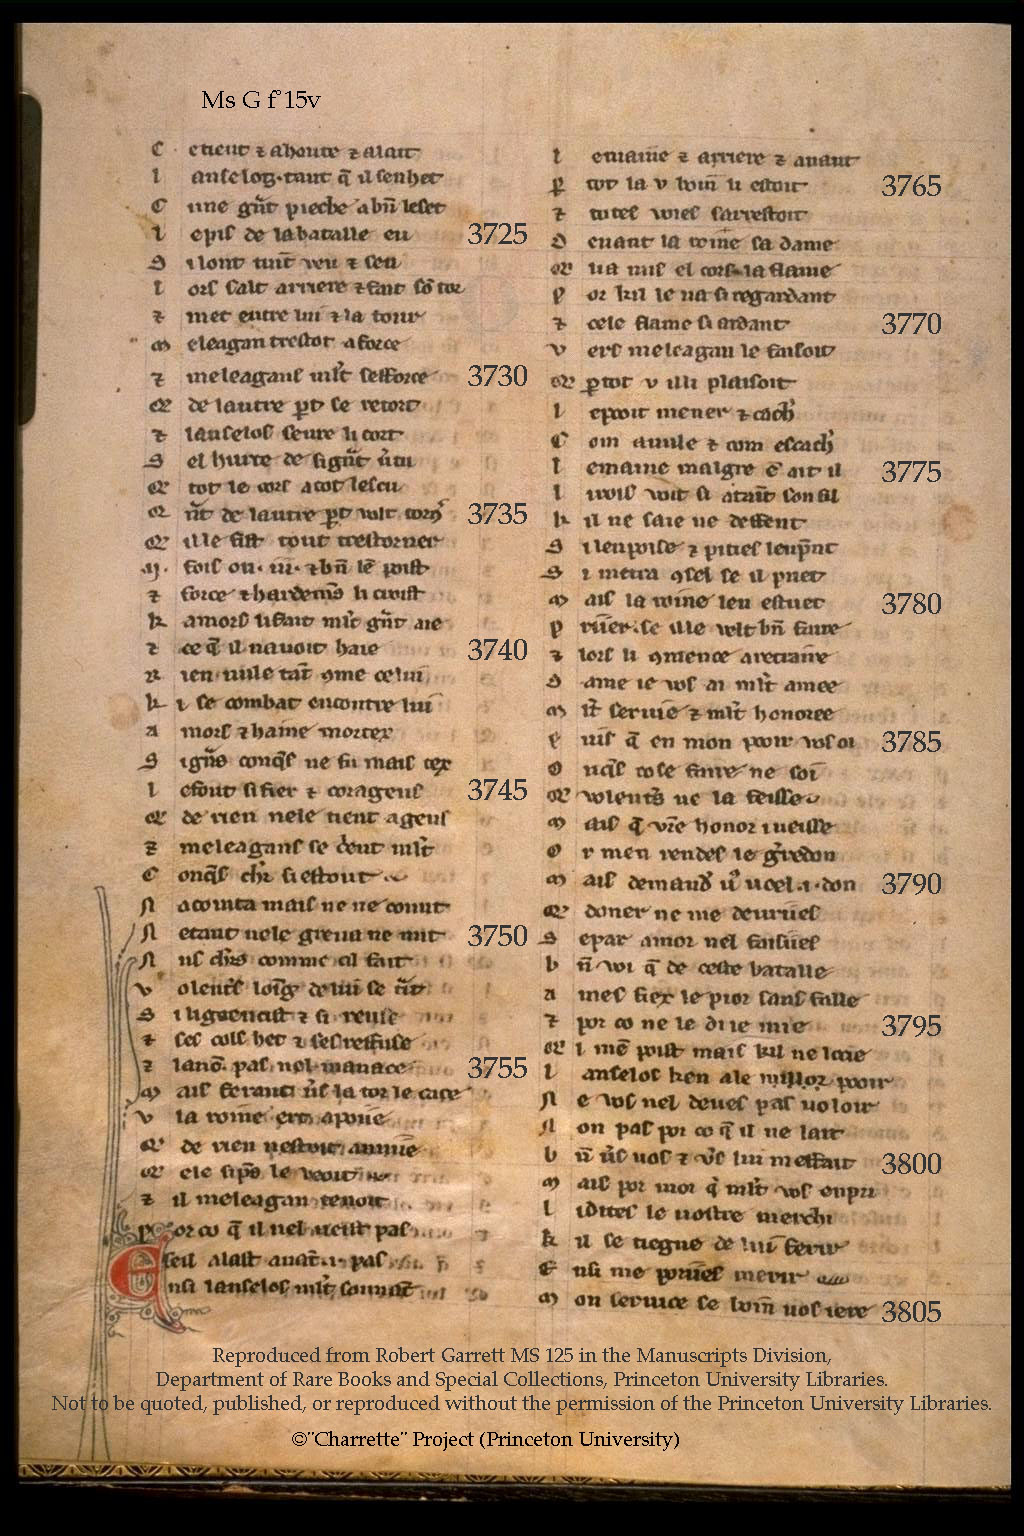 Ms G f° 15v
C etient ⁊ ahoute ⁊ alait
l anselos tant q̄ il senhet
C une gñt pieche a bñ leset
l espis de labatalle en
3725
S ilont tuit veu ⁊ seu
l ors salt arriere ⁊ fait
⁊ met entre lui ⁊ la tour
m eleagan trestot a force
⁊ meleagans ml't sefforce
3730
Q de lautre p̱t se retort
⁊ lanselos seure li cort
S el hurte de si gñt
Q tot le cors a tot lescu
Q de lautre p̱t volt
3735
Q ille fist tout trestorner
fois ou .iii. ⁊ bñ poist
⁊ force ⁊ hardemēs li croist
k amors li fait ml't gñt aie
⁊ ce q̄ il navoit haie
3740
r ien nule tāt 9me celui
k i se combat encontre lui
a mors ⁊ haine mortex
S ne fu mais tex
l efont si fier ⁊ corageus
3745
Q de rien nele tient a geus
⁊ meleagans se ml't
C onq̄s si estout
N acointa mais ne ne conut
N etant nele greva ne nut
3750
N us comme cil fait
v olent's de lui se
S ⁊ si reuse
⁊ ses cols het ⁊ ses refuse
⁊ pas nel manace
3755
m ais ferant la tor le cace
v la roine ert apoiie
Q de rien nestoit annuie
Q ele le veoit
⁊ il meleagan tenoit
p or co q̄ il nel veist pas
E seil alast avāt .i. pas
E nsi lanselos ml't sovent
l emaine ⁊ arriere ⁊ avant
p̱ tot la v boin li estoit
3765
⁊ totes voies sarrestoit
d evant la roine sa dame
Q ua mis el cors la flame
p or kil le va si regardant
⁊ cele flame si ardant
3770
v ers meleagan le faisoit
Q p̱tot v illi plaisoit
l epooit mener ⁊ cach'
C om avule ⁊ com escach'
l emaine malgre ait il
3775
l i rois voit si son fil
k il ne saie ne deffent
S i lenpoise ⁊ pities lenp̄nt
S i metra 9sel se il puet
m ais la roine len estuet
3780
p se ille velt bñ faire
⁊ lors li 9mence a retraire
d ame ie vos ai ml't amee
m ⁊ ml't honoree
p uis q̄ en mon pooir vos oi
3785
o nq̄s cose faire ne soi
Q volent's ne la feisse
m ais q̄ vr̄e honor i veisse
o r men rendes le
m ais demand' .i. don
3790
Q doner ne me
S e par amor nel
b ñ voi q̄ de ceste batalle
a mes fiex le pior sans falle
⁊ por co ne le di ie mie
3795
Q i poist mais kil ne locie
l anselos ken a le millor pooir
N e vos nel deves pas voloir
N on pas por co q̄ il ne lait
b ñ vos ⁊ lui meffait
3800
m ais por moi q̄ ml't vos enpri
l i dites le vostre merchi
k il se tiegne de lui ferir
E nsi me pories merir
m on service se boin vos iere
3805
Reproduced from Robert Garrett MS 125 in the Manuscripts Division,
Department of Rare Books and Special Collections, Princeton University Libraries.
Not to be quoted, published, or reproduced without the permission of the Princeton University Libraries.
©"Charrette" Project (Princeton University)